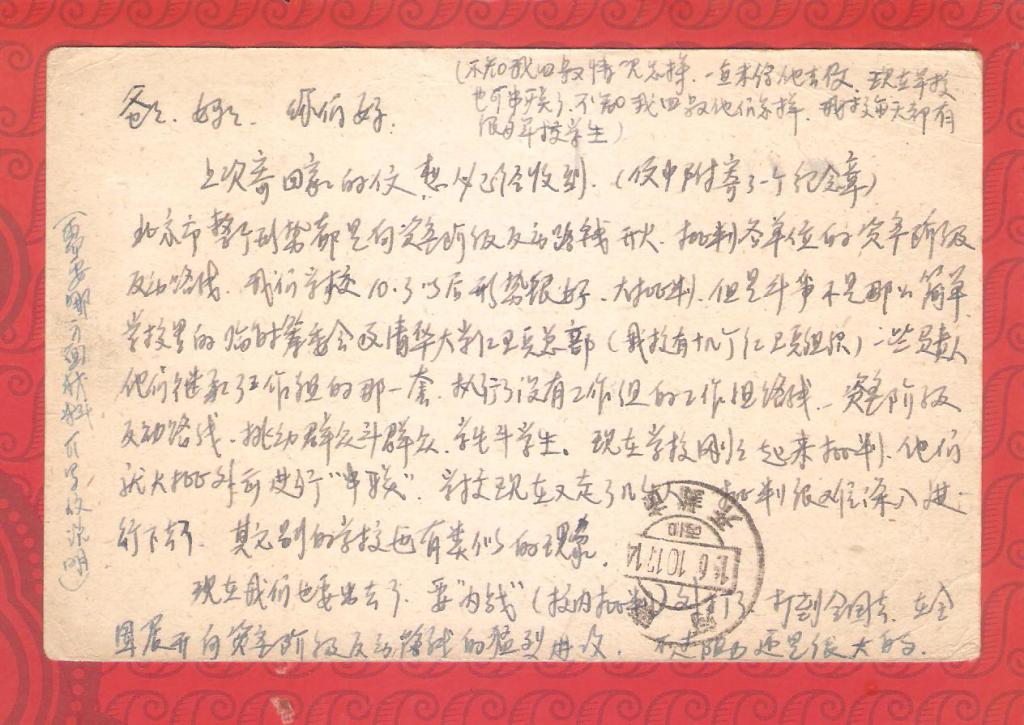 (不知我四叔情况怎样，一直未给他去信，现在军校
也可串联了，不知我四叔他们怎样，我校每天都有
很多军校学生)
爸爸、妈妈、你们好：
上次寄回家的信想必已经收到。(信中附寄了一个纪念章)
北京市整个形势都是向资产阶级反动路线开火，批判各单位的资产阶级
反动路线。我们学校10.3以后形势很好，大批判，但是斗争不是那么简单
学校里的临时筹委会及清华大学红卫兵总部(我校有十几个红卫兵组织)一些负责人
他们继承了工作组的那一套，执行了没有工作组的工作组路线—资产阶级
反动路线，挑动群众斗群众，学生斗学生。现在学校刚刚起来批判，他们
就大批外出进行“串联”，学校现在又走了几千人，批判很难深入进
行下去了。其它别的学校也有类似的现象。
现在我们也要出去了，要“内战”(校内批判) 打到全国去，在全
国展开向资产阶级反动路线的猛烈进攻，不过阻力还是很大的。
(需要哪方面材料可写信说明)
清华园
(四)
1966.10.17.14
北京